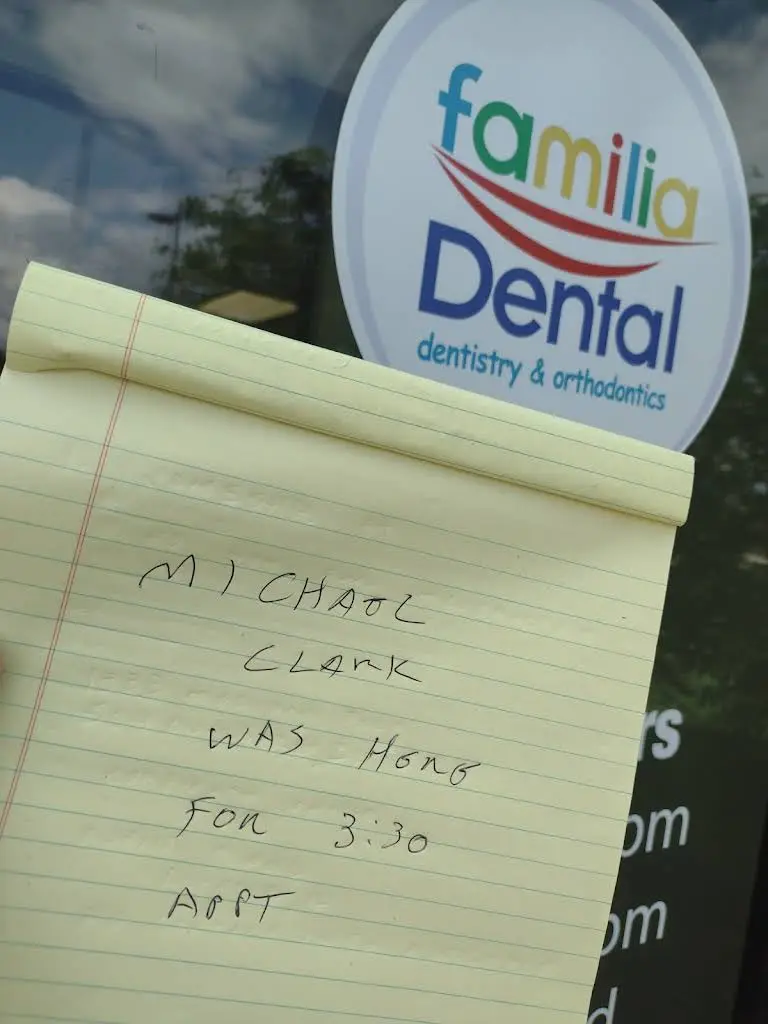 familia
Dental
dentistry & orthodontics
MICHAEL
CLARK
WAS HERE
FOR 3:30
APPT
rs
pm
pm
d